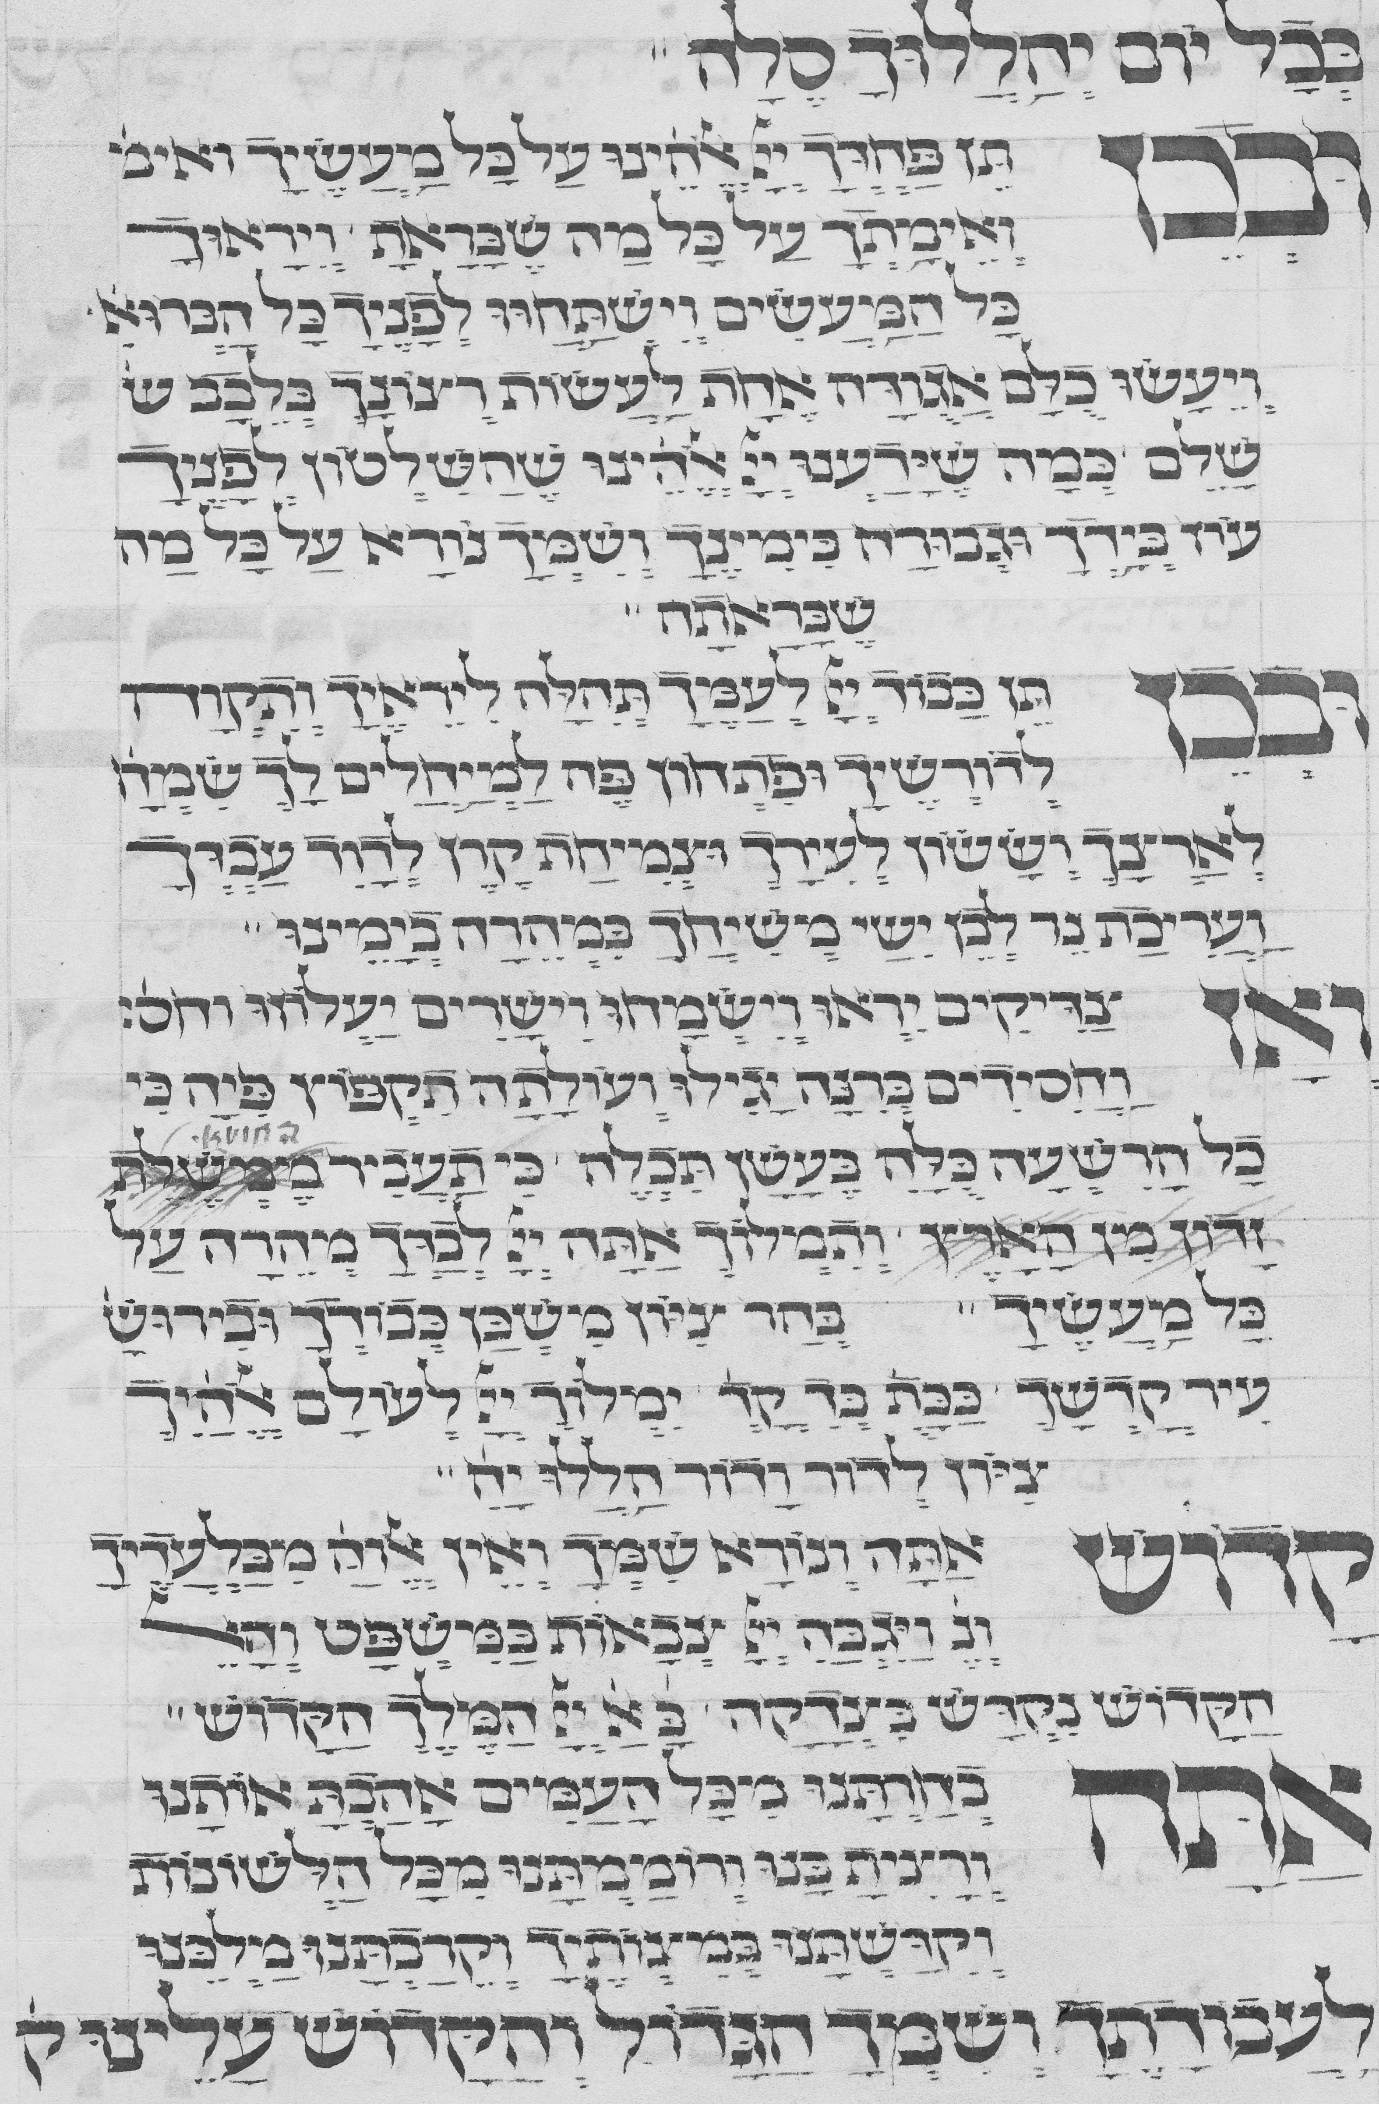 בְּכָל יוֹם יְהַלְלוּךָ סֶלָה׃
וּבְכֵן תֵּן פַּחְדְּךָ יְיָ אֱלֹהֵינוּ עַל כָּל מַעֲשֶׂיךָ ואימ׳
וְאֵימָתְךָ עַל כָּל מַה שֶּׁבָּרָאתָ ׳ וְיִירָאוּךָ
כָּל הַמַּעֲשִׂים וְיִשְׁתַּחֲווּ לְפָנֶיךָ כָּל הַבְּרוּאִ׳
וְיֵעָשׂוּ כֻלָּם אֲגֻודָּה אֶחָת לַעֲשׂוֹת רְצוֹנְךָ בְּלֵבָב ש׳
שָׁלֵם ׳ כְּמָה שֶׁיָּדַעְנוּ יְיָ אֱלֹהֵינוּ שֶׁהַשִּׁלְטוֹן לְפָנֶיךָ
עוֹז בְּיָדְךָ וּגְבוּרָה בִּימִינֶךָ וְשִׁמְךָ נוֹרָא עַל כָּל מַה
שֶּׁבָּרָאתָה ׃
וּבְכֵן תֵּן כָּבוֹד יְיָ לְעַמֶּךָ תְּהִלָּה לִירֵאֶיךָ וְתִקְוָה
לְדוֹרְשֶׁיךָ וּפִתְחוֹן פֶּה לַמְיַחֲלִים לָךְ שִׂמְחָ׳
לְאַרְצְךָ וְשָׂשׂוֹן לְעִירָךְ וּצְמִיחַת קֶרֶן לְדָוִד עַבְדֶּךָ
וַעֲרִיכַת נֵר לְבֶן יִשַׁי מְשִׁיחֶךָ בִּמְהֵרָה בְיָמֵינוּ ׃
וְאָז צַדִּיקִים יִרְאוּ וְיִשְׂמָחוּ וִישָׁרִים יַעֲלוֹזוּ וחס׳
וַחֲסִידִים בְּרִנָּה יָגִילוּ וְעוֹלָתָה תִּקְפּוֹץ פִּיהָ כִּי
כָל הָרִשְׁעָה כֻּלָּהּ בֶּעָשָׁן תִּכְלֶה ׳ כִּי תַעֲבִיר מֶמְשֶׁלֶת
זָדוֹן מִן הָאָרֶץ ׳ וְתִמְלוֹךְ אַתָּה יְיָ לְבַדְּךָ מְהֵרָה עַל
כָּל מַעֲשֶׂיךָ ׃ בְּהַר צִיּוֹן מִשְׁכַּן כְּבוֹדֶךָ וּבִירוּשָׁ׳
עִיר קָדְשָׁךְ ׳ כַּכָּתֻ׳ בְּדִ׳ קָדְ׳ ׳ יִמְלוֹךְ יְיָ לְעוֹלָם אֱלֹהַיִךְ
צִיּוֹן לְדוֹר וָדוֹר הַלְלוּ יָהּ ׃
קָדוֹשׁ אַתָּה וְנוֹרָא שְׁמֶךָ וְאֵין אֱלוֹהַּ מִבַּלְעָדֶיךָ
וְנֶ׳ וַיִּגְבַּהּ יְיָ צְבָאוֹת בַּמִּשְׁפָּט וְהָאֵל
הַקָּדוֹשׁ נִקְדָּשׁ בִּצְדָקָה ׳ בָּ׳ אַ׳ יְיָ הַמֶּלֶךְ הַקָּדוֹשׁ ׃
אַתָּה בְחַרְתָּנוּ מִכָּל הָעַמִּים אָהַבְתָּ אוֹתָנוּ
וְרָצִיתָ בָּנוּ וְרוֹמַמְתָּנוּ מִכָּל הַלְּשׁוֹנוֹת
וְקִדַּשְׁתָּנוּ בְּמִצְוֹתֶיךָ וְקֵרַבְתָּנוּ מַלְכֵּנוּ
לַעֲבוֹדָתֶךָ וְשִׁמְךָ הַגָּדוֹל וְהַקָּדוֹשׁ עָלֵינוּ ק׳